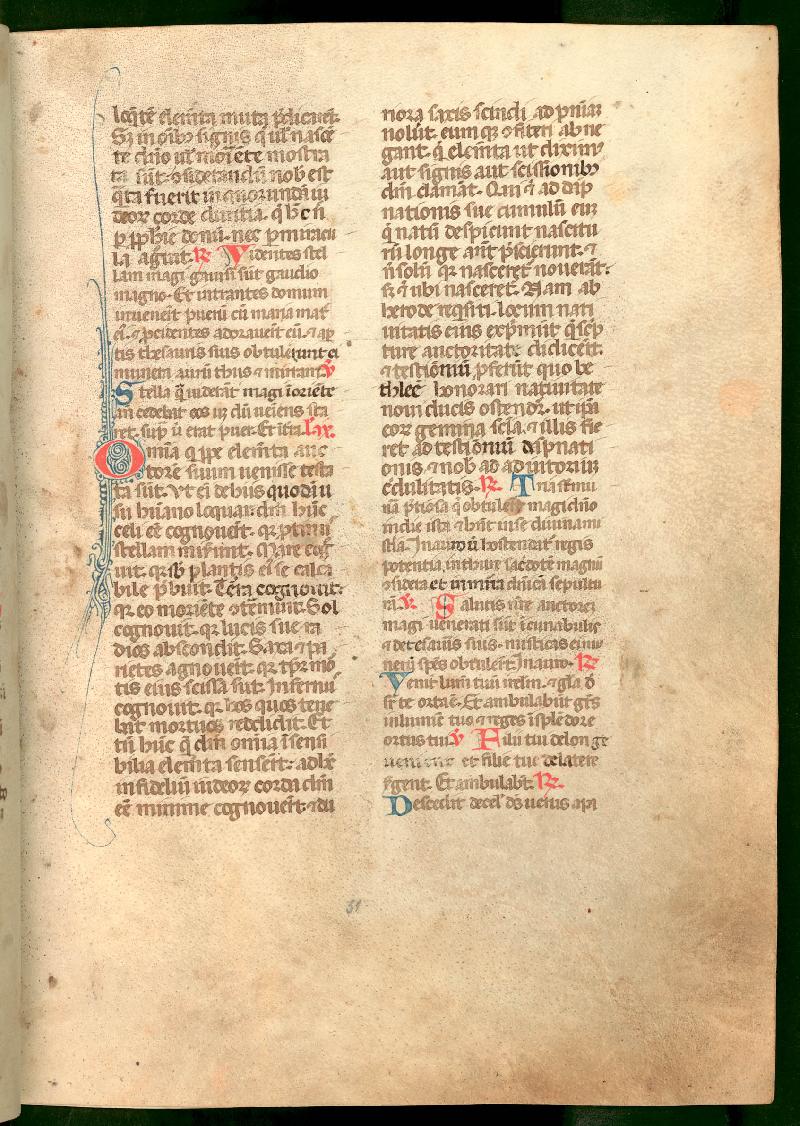 loq̄tē elem̄ta muta p̄dicauer̄t.
S; in om̄ib; signis q̄ ul̓ nascē
te dn̄o ul̓ moriēte mostra
ta sūt. ɔsiderandū nob̓ est
q̄ta fuerit in quorundā iu
deoꝝ corde duritia. q̄ hc̄ n̄
ꝑ ꝓph̓ie donū. nec ꝑ miracu
la agūt. R̄ Videntes stel
lam magi gauisi sūt gaudio
magno. Et intrantes domum
inuener̄t puerū cū maria mat̄
ei. ⁊ ꝓcidentes adorauer̄t eū. ⁊ aꝑ
tis thesauris suis obtulerunt ei
munera aurū thus ⁊ mirram. V̄
Stella q̄ uiderāt magi ī oriēte
antecedebat eos usq̄ dū ueniens sta
ret. sup̄ ū erat puer. Et ītrā. L. ix.
Omīa q̄ ipe elem̄ta auc
torē suum uenisse testa
ta sūt. Vt ei̓ de hiis quodā u
su hūano loquar. dm̄ hūc
celi eē cognouer̄t. qꝛ ꝓtinꝰ
stellam miser̄unt. Mare cog
uit. qꝛ sb̓ plantis ei̓ se calca
bile p̄buit. Terra cognouit.
qꝛ eo moriēte ɔtremuit. Sol
cognouit. qꝛ lucis sue ra
dios abscondit. Saxa ⁊ pa
rietes agnouer̄t. qꝛ tp̄r mo
tis eius scissa sūt. Infernꝰ
cognouit. qꝛ hos quos tene
bat mortuos reddidit. Et
tn̄ hūc q̄ dm̄ omīa īsensi
bilia elem̄ta senser̄t. adhꝰ
infideliū iudeoꝝ corda dm̄
eē minime cognouer̄t. ⁊ du
riora saxis scindi ad pn̄iā
nolūt. eum qꝫ ɔfiteri ab ne
gant. q̄ elem̄ta ut diximꝰ
aut signis aut scissionib;
dm̄ clamāt. Qui ⁊ ad dāp
nationis sue cumulū eū
q̄ natū despiciunt nascitu
rū longe an̄t p̄scierunt. ⁊
n̄ solū qꝛ nasceret̄ nouerāt.
s; ⁊ ubi nasceret̄. Nam ab
herode reqsiti. locum nati
uitatis eius exprimūt quē sc̄p
ture auctoritate didicer̄t.
⁊ testioniū ꝓferūt quo be
thleē honorari natiuitate
noui ducis ostendr̄. ut ip̄a
eoꝝ gemina scīa. ⁊ illis fie
ret ad testioniū dapnati
onis ⁊ nob̓ ad adiutoriū
c̄dulitatis. R̄ Tria st̄ mu
n̄a p̄tiosa q̄ obtuler̄t magi dn̄o
in die ista ⁊ hn̄t in se diuina mi
steria. In auro ū hostendat̄ regis
potentia. in thure sac̄dotē magnū
ɔsidera et in mirra dn̄icā sepultu
rā. V̄ Salutis n̄re auctorē
magi uenerati sūt ī cunabulis
⁊ de tesauris suis misticas ei mu
nerū spēs obtuler̄t. In auro. R̄
Venit lum̄ tuū irl̄m. ⁊ gl̄a d̄
sr̄ te orta ē. Et ambulabūt gēs
in lumīe tuo ⁊ reges ī splēdore
ortus tui. V̄ Filii tui de longe
uenient et filie tue de latere
s̄gent. Et ambulab̄t. R̄
Descēdit de celꝰ ds̄ uerus a pa